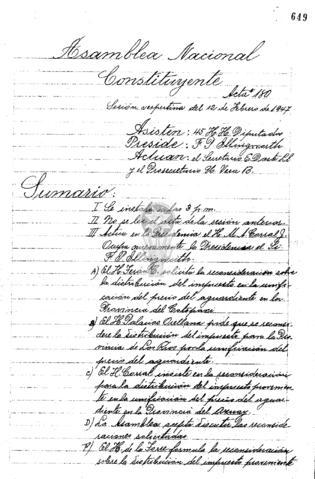 649
Asamblea Nacional
Constituyente
Acta nº 180
Sesión vespertina del 12 de Febrero de 1947
Asisten: 45 H.H. Diputados
Preside: F. P. Illingworth
Actúan: el Secretario
y el Prosecretario H. Vera B.
Sumario:
I Se instala 3 p.m.
II No se lee el acta de la sesión anterior
III Actúa en la Presidencia el H. M. A. Corral J.
Ocupa nuevamente la Presidencia el Sr.
F. P. Illingworth.
A) El H. Terán C. solicita la reconsideración sobre
la distribución del impuesto en la unifi-
cación del precio del aguardiente en la
Provincia del Cotopaxi
B) El H. Palacios Orellana pide que se reconsi-
dere la distribución del impuesto para la Pro-
vincia de Los Ríos por la unificación del
precio del aguardiente.
C) El H. Corral insiste en la reconsideración
para la distribución del impuesto provenien-
te en la unificación del precio del aguar-
diente en la Provincia del Azuay.
D) La Asamblea acepta discutir las reconside
raciones solicitadas
F) El H. de la Torre formula la reconsideración
sobre la distribución del impuesto proveniente